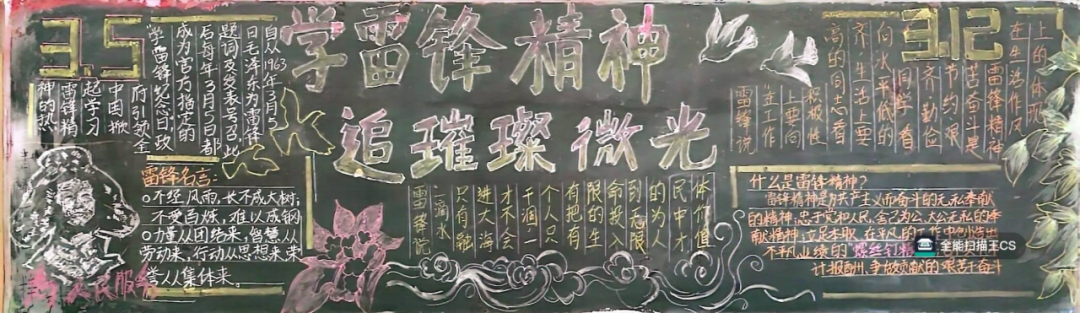 3.5
学雷锋精神
追璀璨微光
3.12
自从1963年3月5
日毛泽东为雷锋
题词及发表号召此
后每年3月5日都
成为官方指定的
学雷锋纪念日,政
府引领全
中国掀
起学习
雷锋精
神的热
雷锋名言:
不经风雨,长不成大树;
不受百炼,难以成钢
力量从团结来,智慧从
劳动来,行动从思想来荣
誉从集体来。
人民服务
雷锋说
一滴水
只有融
进大海
才不会
干涸一
个人只
有把有
限的生
命投入
到无限
的为人
民中才
体价值
雷锋说
在工作
上要向
积极性
高的同志看
齐生活上要
向水平低的
同学看
齐勤俭
节约艰
苦奋斗是
雷锋精神
在生活作风
上的体现
什么是雷锋精神?
雷锋精神是为共产主义而奋斗的无私奉献
的精神,忠于党和人民,舍己为公,大公无私的奉
献精神,立足本职,在平凡的工作中创造出
不平凡业绩的"螺丝钉精
计报酬,争做贡献的艰苦奋斗
全能扫描王CS